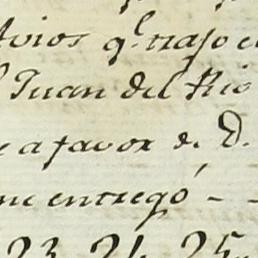 Avios q.^l trajo e
Juan del Rio
e a favor de D.
me entregó - -
23 24 25